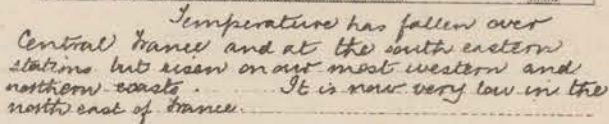 Temperature has fallen over
Central France and at the south eastern
stations but risen on our most western and
northern coasts. It is now very low in the
north east of France.